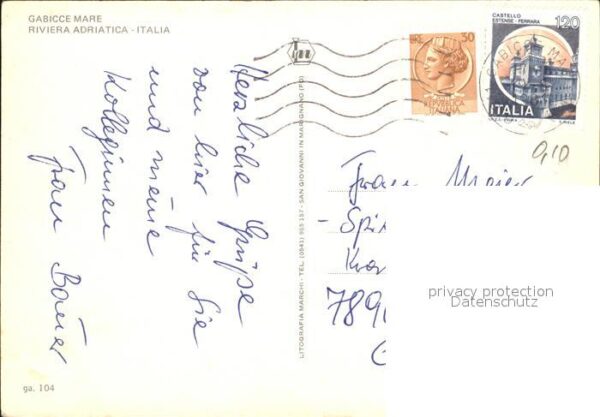 GABICCE MARE
RIVIERA ADRIATICA - ITALIA
Herzliche Grüße
von hier für Sie
und meine
Kolleginnen
Frau Bauer
ga. 104
LITOGRAFIA MARCHI - TEL. (0541) 955 157 - SAN GIOVANNI IN MARIGNANO (FO)
30
REPUBBLICA
ITALIANA
CASTELLO
ESTENSE - FERRARA
120
ITALIA
GABICCE MA
0,10
Frau Maier
- Spi
789
privacy protection
Datenschutz